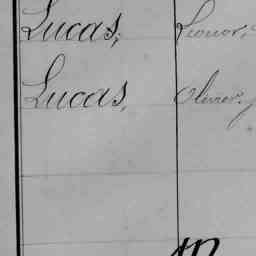 Lucas, Leonor,
Lucas, Oliver,